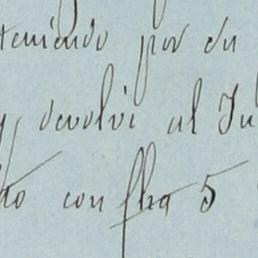 teniendo por su
y devolví al Ju
do con fha 5